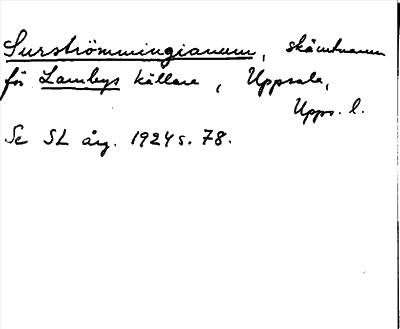 Surströmmingianum, skämtnamn
för Lambys källare, Uppsala,
Upps. l.
Se SL årg. 1924 s. 78.